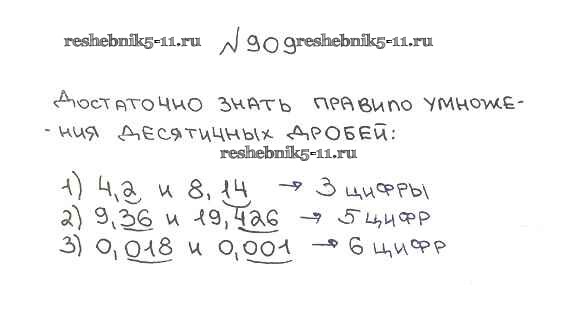 reshebnik5-11.ru №909 reshebnik5-11.ru
Достаточно знать правило умноже-
-ния десятичных дробей:
reshebnik5-11.ru
1) 4,2 и 8,14 → 3 цифры
2) 9,36 и 19,426 → 5 цифр
3) 0,018 и 0,001 → 6 цифр